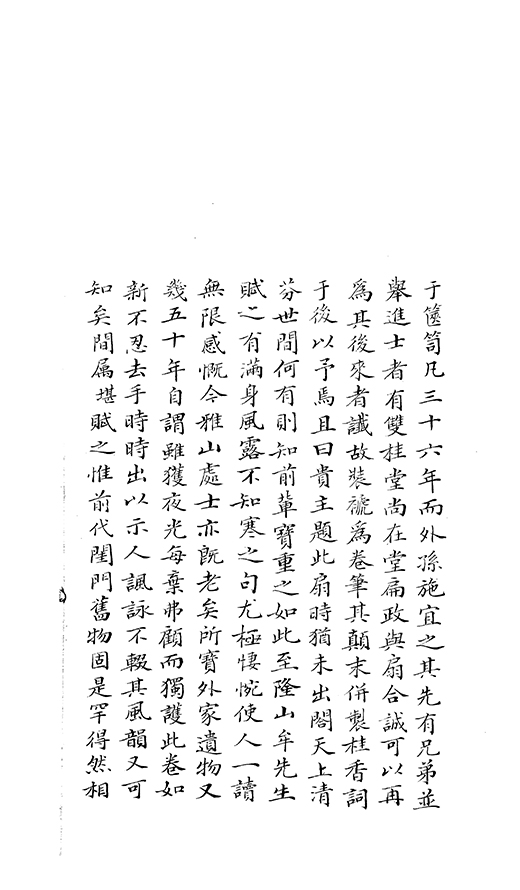 于篋笥凡三十六年而外孫施宜之其先有兄弟並
舉進士者有雙桂堂尚在堂扁政與扇合誠可以再
為其後來者讖故裝褫為卷筆其顛末併製桂香詞
于後以予焉且曰貴主題此扇時猶未出閤天上清
芬世間何有則知前輩寶重之如此至隆山牟先生
賦之有滿身風露不知寒之句尤極悽惋使人一讀
無限感慨今雅山處士亦既老矣所寶外家遺物又
幾五十年自謂雖獲夜光每棄弗顧而獨護此卷如
新不忍去手時時出以示人諷詠不輟其風韻又可
知矣間属堪賦之惟前代閨門舊物固是罕得然相